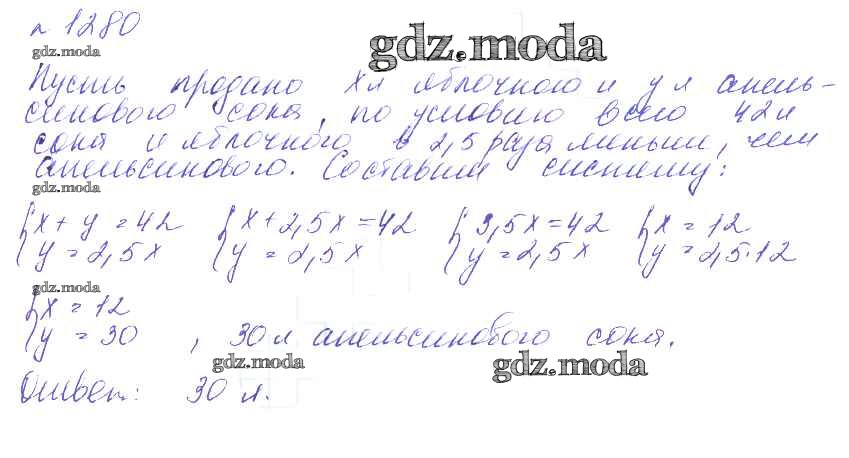 n 1280
gdz.moda
gdz.moda
Пусть продано х л яблочного и у л апель-
синового сока, по условию всего 42 л
сока и яблочного в 2,5 раза меньше, чем
апельсинового. Составим систему:
gdz.moda
{ х + у = 42 { х + 2,5х = 42 { 3,5х = 42 { х = 12
{ у = 2,5х { у = 2,5х { у = 2,5х { у = 2,5·12
gdz.moda
{ х = 12
{ у = 30 , 30 л апельсинового сока.
gdz.moda
gdz.moda
Ответ: 30 л.